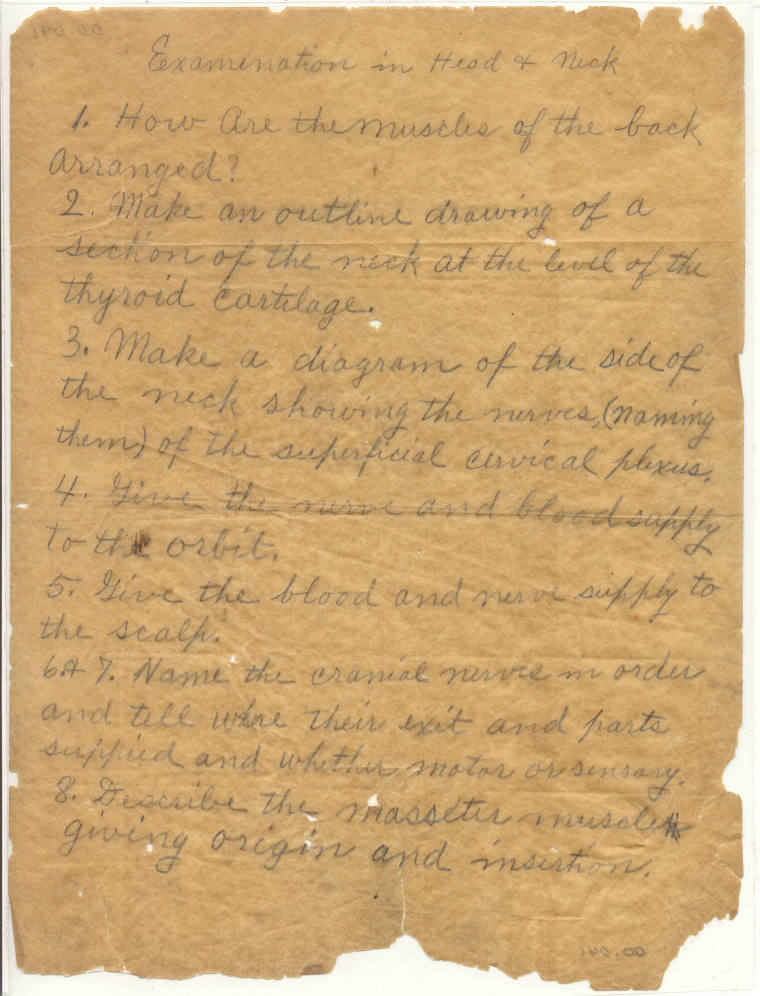 00.041
Examenation in Head & Neck
1. How Are the muscles of the back
arranged?
2. Make an outline drawing of a
section of the neck at the level of the
thyroid cartilage.
3. Make a diagram of the side of
the neck showing the nerves, (naming
them) of the superficial cervical plexus.
4. Give the nerve and blood supply
to the orbit.
5. Give the blood and nerve supply to
the scalp.
6 & 7. Name the cranial nerves in order
and tell where their exit and parts
suppied and whether motor or sensory.
8. Describe the masseter muscle
giving origin and insertion.
00.041